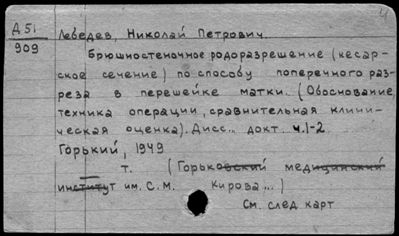 Д 51
909
Лебедев, Николай Петрович.
Брюшностеночное родоразрешение (кесар-
ское сечение) по способу поперечного раз-
реза в перешейке матки. (Обоснование,
техника операции, сравнительная клини-
ческая оценка). Дисс... докт. ч.1-2
Горький, 1949
т. (Горьковский медицинский
институт им. С. М. Кирова...)
См. след карт